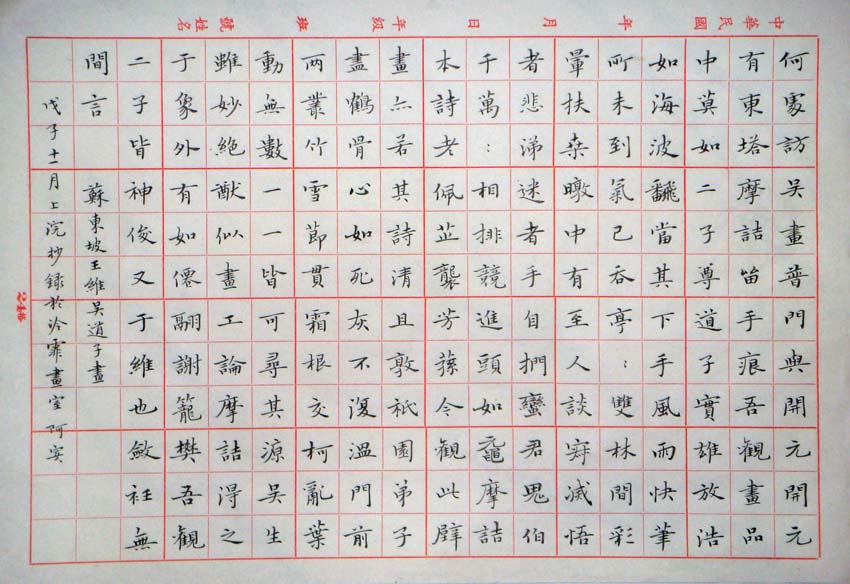 中華民國 年 月 日 年級 班 號 姓名
何處訪吳畫普門與開元開元
有東塔摩詰留手痕吾觀畫品
中莫如二子尊道子實雄放浩
如海波翻當其下手風雨快筆
所未到氣已吞亭:雙林間彩
暈扶桑暾中有至人談寂滅悟
者悲涕迷者手自捫蠻君鬼伯
千萬:相排競進頭如黿摩詰
本詩老佩芷襲芳蓀今觀此壁
畫亦若其詩清且敦祇園弟子
盡鶴骨心如死灰不復溫門前
兩叢竹雪節貫霜根交柯亂葉
動無數一一皆可尋其源吳生
雖妙絕猷似畫工論摩詰得之
于象外有如僊翮謝籠樊吾觀
二子皆神俊又于維也斂衽無
間言 蘇東坡王維吳道子畫
戊子十一月上浣抄錄於泠霏畫室阿宾